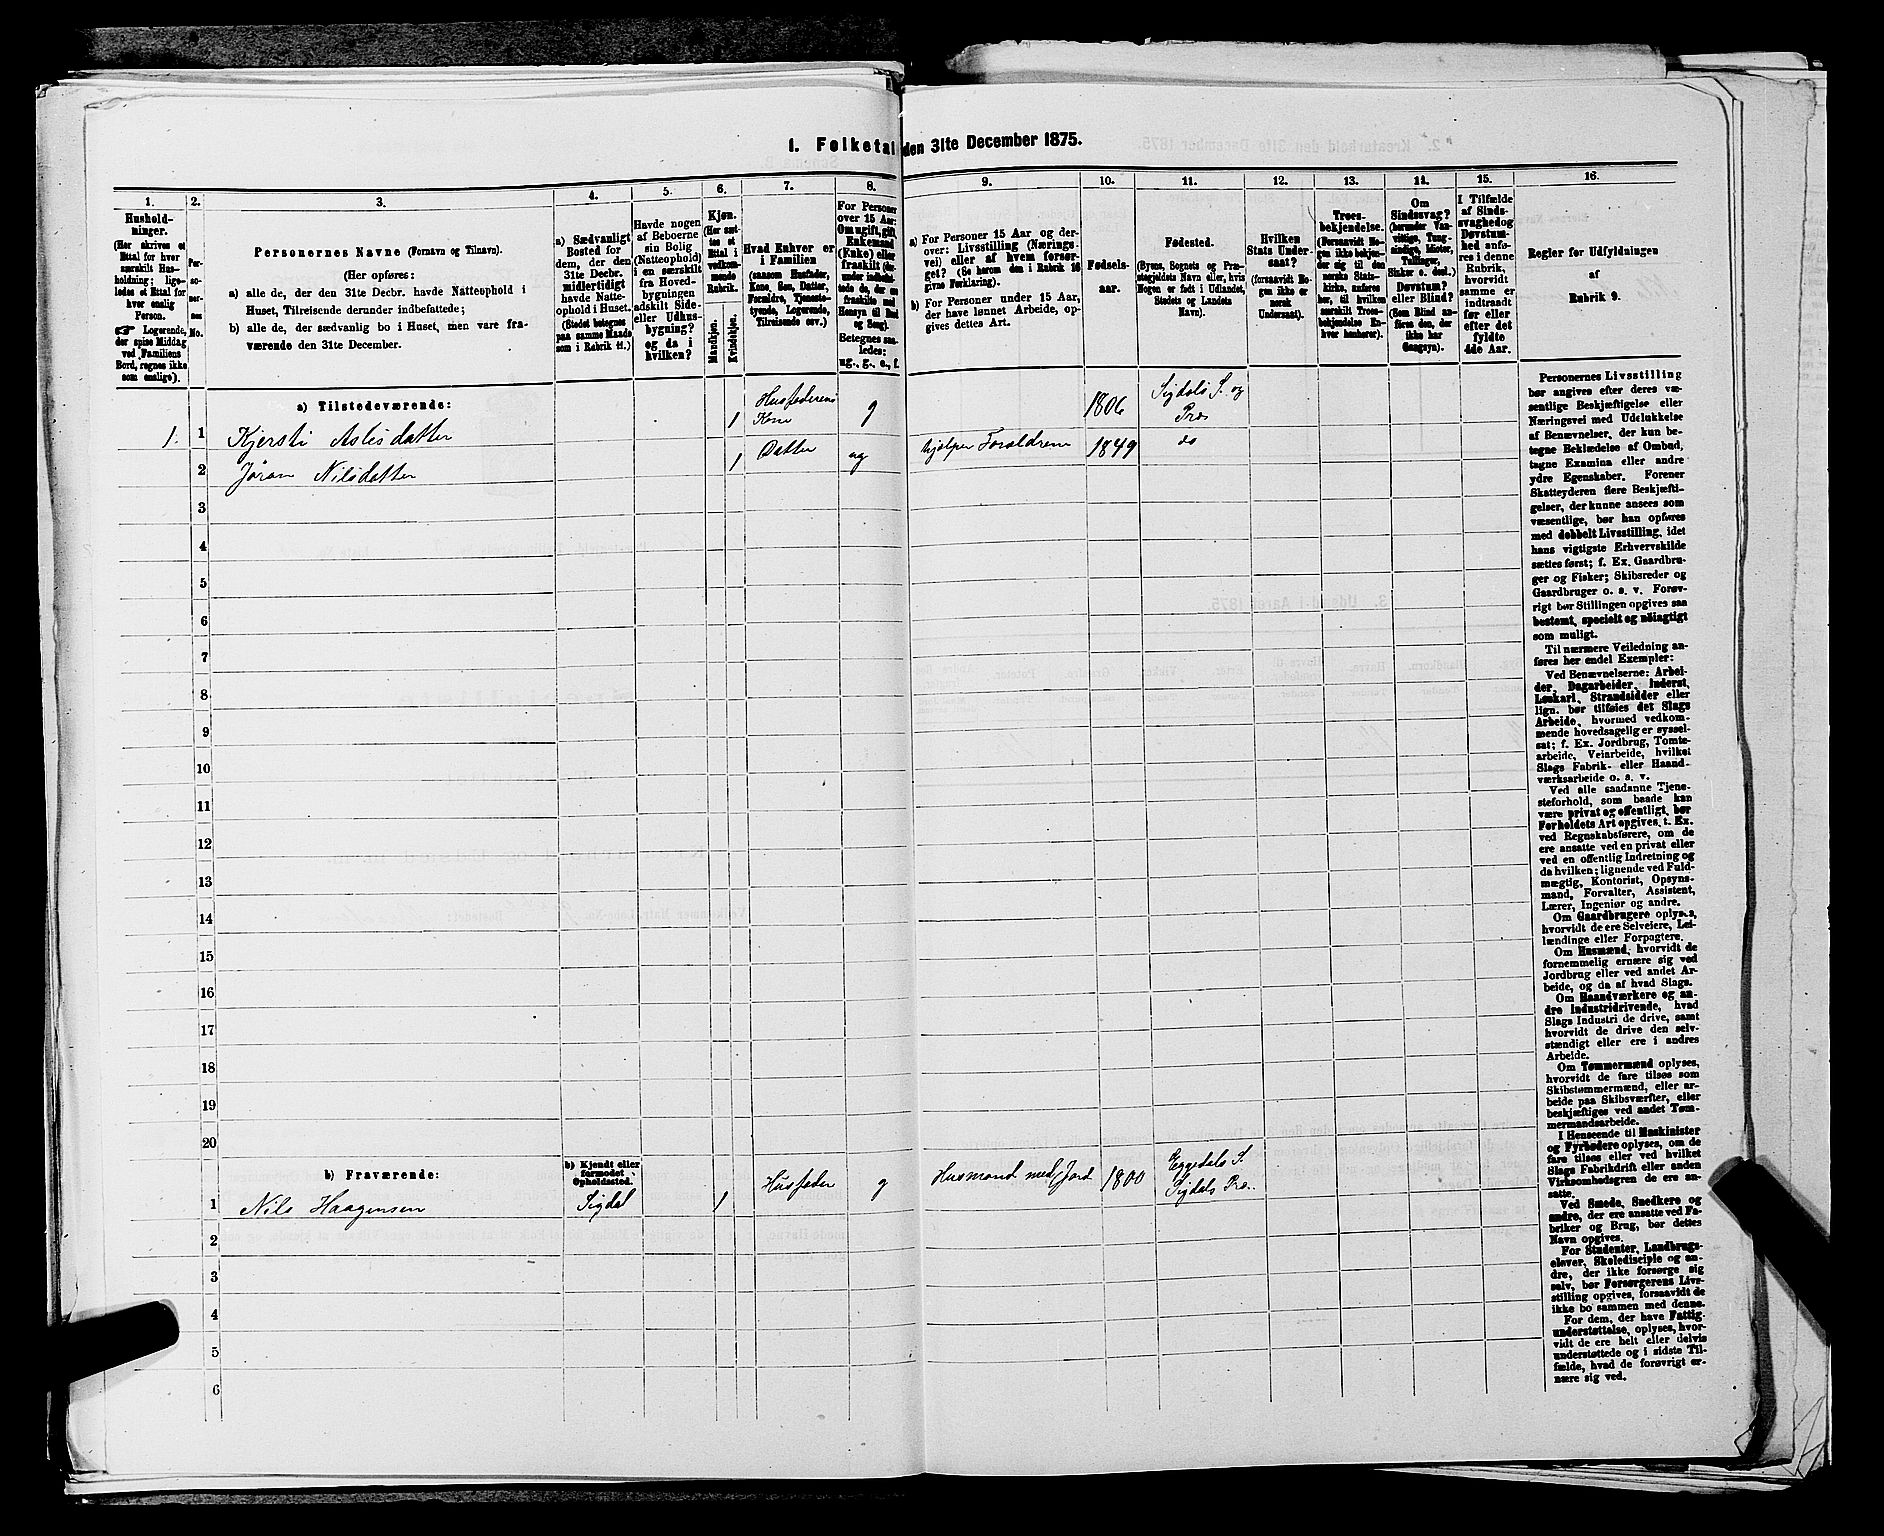 1. Folketal den 31te December 1875.
1.
2.
3.
4.
5.
6.
7.
8.
9.
10.
11.
12.
13.
14.
15.
16.
Hushold-
ninger.
(Her skrives et
Ettal for hver
særskilt Hus-
holdning; lige-
ledes et Ettal for
hver enslig
Person.
☞ Logerende,
der spise Middag
ved Familiens
Bord, regnes ikke
som enslige).
Per-
so-
ner-
nes
No.
Personernes Navne (Fornavn og Tilnavn).
(Her opføres:
a) alle de, der den 31te Decbr. havde Natteophold i
Huset, Tilreisende derunder indbefattede;
b) alle de, der sædvanlig bo i Huset, men vare fra-
værende den 31te December.
a) Sædvanligt
Bosted for
dem, der den
31te Decbr.
midlertidigt
havde Natte-
ophold i Huset.
(Stedet betegnes
paa samme Maade
som i Rubrik 11.)
Havde nogen
af Beboerne
sin Bolig
(Natteophold)
i en særskilt
fra Hoved-
bygningen
adskilt Side-
eller Udhus-
bygning?
og da i
hvilken?
Kjøn.
(Her sæt-
tes et
Ettal i
vedkom-
mende
Rubrik.
Mandkjøn.
Kvindekjøn.
Hvad Enhver er
i Familien
(saasom Husfader,
Kone, Søn, Datter,
Forældre, Tjeneste-
tyende, Logerende,
Tilreisende osv.)
For Personer
over 15 Aar:
Om ugift, gift,
Enkemand
(Enke) eller
fraskilt (der-
under indbefat-
tede de, der ere
fraskilte med
Hensyn til Bord
og Seng).
Betegnes saa-
ledes:
ug., g., e., f.
a) For Personer 15 Aar og der-
over: Livsstilling (Nærings-
vei) eller af hvem forsør-
get? (Se herom den i Rubrik 16
givne Forklaring).
b) For Personer under 15 Aar,
der have lønnet Arbeide, op-
gives dettes Art.
Fødsels-
aar.
Fødested.
(Byens, Sognets og Præ-
stegjeldets Navn eller, hvis
Nogen er født i Udlandet,
Stedets og Landets
Navn).
Hvilken
Stats Under-
saat?
(forsaavidt No-
gen ikke er
norsk
Undersaat).
Troes-
bekjendelse.
(Forsaavidt No-
gen ikke bekjen-
der sig til den
norske Stats-
kirke, anføres
her, til hvilken
særskilt Troes-
bekjendelse En-
hver henhører).
Om
Sindssvag?
(herunder Van-
vittige, Tung-
sindige, Idioter,
Tullinger,
Sinker o. desl.)
Døvstum?
eller Blind?
(Som Blind an-
føres den, der
ikke har
Gangsyn).
I Tilfælde
af Sinds-
svaghed og
Døvstum-
hed anfø-
res i denne
Rubrik,
hvorvidt
samme er
indtraadt
før eller
efter det
fyldte
4de Aar.
Regler for Udfyldningen
af
Rubrik 9.
a) Tilstedeværende:
1. 1 Kjersti Aslesdatter 1 Husfaderens Kone g 1806 Sigdals S. og Præs
2 Jøran Nilsdatter 1 Datter ug hjælper Forældrene 1849 do
3
4
5
6
7
8
9
10
11
12
13
14
15
16
17
18
19
20
b) Fraværende:
b) Kjendt eller
formodet
Opholdssted.
1 Nils Haagensen Sigdal 1 Husfader g Husmand med Jord 1800 Eggedals S. Sigdals Præ.
2
3
4
5
6
Personernes Livsstilling
bør angives efter deres væ-
sentlige Beskjæftigelse eller
Næringsvei med Udelukkelse
af Benævnelser, der kun be-
tegne Beklædelse af Ombud,
tagne Examina eller andre
ydre Egenskaber. Forener
Skatteyderen flere Beskjæfti-
gelser, der kunne ansees som
væsentlige, bør han opføres
med dobbelt Livsstilling, idet
hans vigtigste Erhvervskilde
sættes først; f. Ex. Gaardbru-
ger og Fisker; Skibsreder og
Gaardbruger o. s. v. Forøv-
rigt bør Stillingen opgives saa
bestemt, specielt og nøiagtigt
som muligt.
Til nærmere Veiledning an-
føres her endel Exempler:
Ved Benævnelserne: Arbei-
der, Dagarbeider, Inderst,
Løskarl, Strandsidder eller
lign. bør tilføies det Slags
Arbeide, hvormed vedkom-
mende hovedsagelig er syssel-
sat; f. Ex. Jordbrug, Tomte-
arbeide, Veiarbeide, hvilket
Slags Fabrik- eller Haand-
værksarbeide o. s. v.
Ved alle saadanne Tjene-
steforhold, som baade kan
være privat og offentligt, bør
Forholdets Art opgives, t. Ex.
ved Regnskabsførere, om de
ere ansatte ved en privat eller
ved en offentlig Indretning og
da hvilken; lignende ved Fuld-
mægtig, Kontorist, Opsyns-
mand, Forvalter, Assistent,
Lærer, Ingeniør og andre.
Om Gaardbrugere oplyses,
hvorvidt de ere Selveiere, Lei-
lændinge eller Forpagtere.
Om Husmænd, hvorvidt de
fornemmelig ernære sig ved
Jordbrug eller ved andet Ar-
beide, og da af hvad Slags.
Om Haandværkere og an-
dre Industridrivende, hvad
Slags Industri de drive, samt
hvorvidt de drive den selv-
stændigt eller ere i andres
Arbeide.
Om Tømmermænd oplyses,
hvorvidt de fare tilsøs som
Skibstømmermænd, eller ar-
beide paa Skibsværfter, eller
beskjæftiges ved andet Tøm-
mermandsarbeide.
I Henseende til Maskinister
og Fyrbødere oplyses, om de
fare tilsøs eller ved hvilket
Slags Fabrikdrift eller anden
Virksomhedsgren de ere an-
satte.
Ved Smede, Snedkere og
andre, der ere ansatte ved Fa-
briker og Brug, bør dettes
Navn opgives.
For Studenter, Landbrugs-
elever, Skoledisciple og an-
dre, der ikke forsørge sig
selv, bør Forsørgerens Livs-
stilling opgives, forsaavidt de
ikke bo sammen med denne.
For dem, der have Fattig-
understøttelse, oplyses, hvor-
vidt de ere helt eller delvis
understøttede og i sidste Til-
fælde, hvad de forøvrigt er-
nære sig ved.